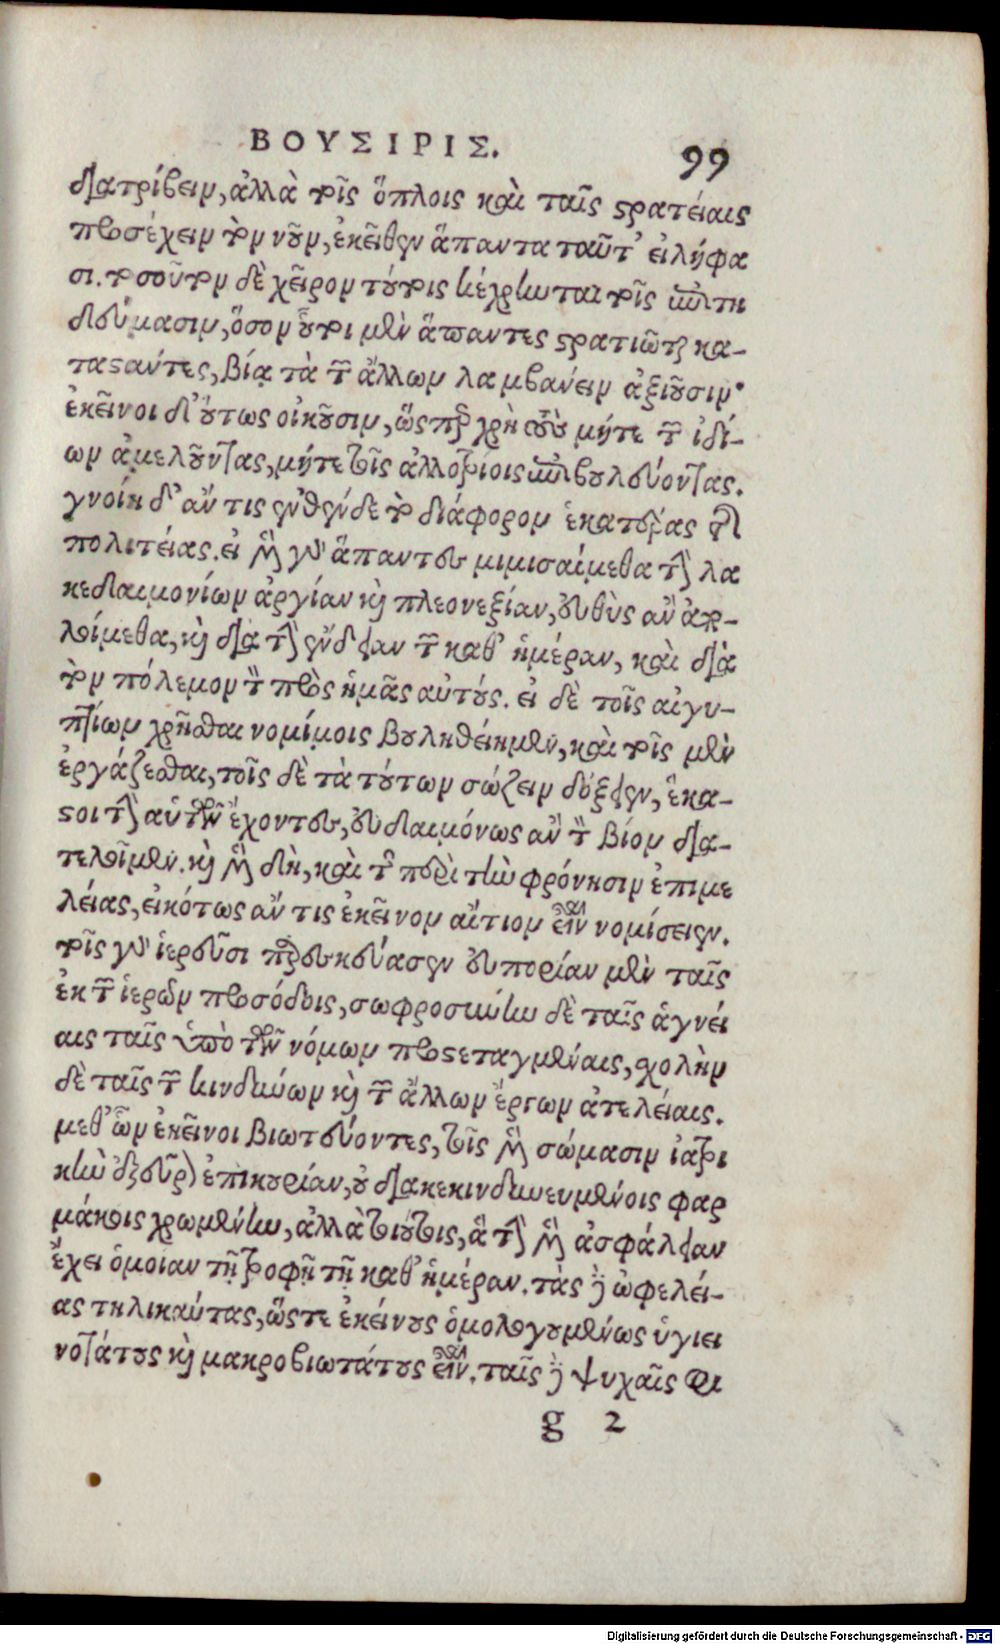 ΒΟΥΣΙΡΙΣ. 99
διατρίβειν, ἀλλὰ τοῖς ὅπλοις καὶ ταῖς στρατείαις
προσέχειν τὸν νοῦν, ἐκεῖθεν ἅπαντα ταῦτ’ εἰλήφα
σι. τοσοῦτον δὲ χεῖρον τούτοις κέχρηνται τοῖς ἐπιτη
δεύμασιν, ὅσον οὗτοι μὲν ἅπαντες στρατιῶται κα-
ταστάντες, βίᾳ τὰ τῶν ἄλλων λαμβάνειν ἀξιοῦσιν·
ἐκεῖνοι δ’ οὕτως οἰκοῦσιν, ὥσπερ χρὴ τοὺς μήτε τῶν ἰδί-
ων ἀμελοῦντας, μήτε τοῖς ἀλλοτρίοις ἐπιβουλεύοντας.
γνοίη δ’ ἄν τις ἐνθένδε τὸ διάφορον ἑκατέρας τῆς
πολιτείας. εἰ μὲν γὰρ ἅπαντες μιμισαίμεθα τὴν λα
κεδαιμονίων ἀργίαν καὶ πλεονεξίαν, εὐθὺς ἂν ἀπο-
λοίμεθα, καὶ διὰ τὴν ἔνδειαν τῶν καθ’ ἡμέραν, καὶ διὰ
τὸν πόλεμον τὸν πρὸς ἡμᾶς αὐτούς. εἰ δὲ τοῖς αἰγυ-
πτίων χρῆσθαι νομίμοις βουληθείημεν, καὶ τοῖς μὲν
ἐργάζεσθαι, τοῖς δὲ τὰ τούτων σώζειν δόξειεν, ἕκα-
στοι τὴν αὑτῶν ἔχοντες, εὐδαιμόνως ἂν τὸν βίον δια-
τελοῖμεν. καὶ μὲν δὴ, καὶ τῆς περὶ τὴν φρόνησιν ἐπιμε
λείας, εἰκότως ἄν τις ἐκεῖνον αἴτιον εἶναι νομίσειεν.
τοῖς γὰρ ἱερεῦσι παρεσκεύασεν εὐπορίαν μὲν ταῖς
ἐκ τῶν ἱερῶν προσόδοις, σωφροσύνην δὲ ταῖς ἁγνεί
αις ταῖς ὑπὸ τῶν νόμων προστεταγμέναις, σχολὴν
δὲ ταῖς τῶν κινδύνων καὶ τῶν ἄλλων ἔργων ἀτελείαις.
μεθ’ ὧν ἐκεῖνοι βιωτεύοντες, τοῖς μὲν σώμασιν ἰατρι
κὴν ἐξεῦρον ἐπικουρίαν, οὐ διακεκινδυνευμένοις φαρ
μάκοις χρωμένην, ἀλλὰ τοιούτοις, ἃ τὴν μὲν ἀσφάλειαν
ἔχει ὁμοίαν τῇ τροφῇ τῇ καθ’ ἡμέραν. τὰς δὲ ὠφελεί-
ας τηλικαύτας, ὥστε ἐκείνους ὁμολογουμένως ὑγιει
νοτάτους καὶ μακροβιωτάτους εἶναι. ταῖς δὲ ψυχαῖς φι
g 2
Digitalisierung gefördert durch die Deutsche Forschungsgemeinschaft - DFG